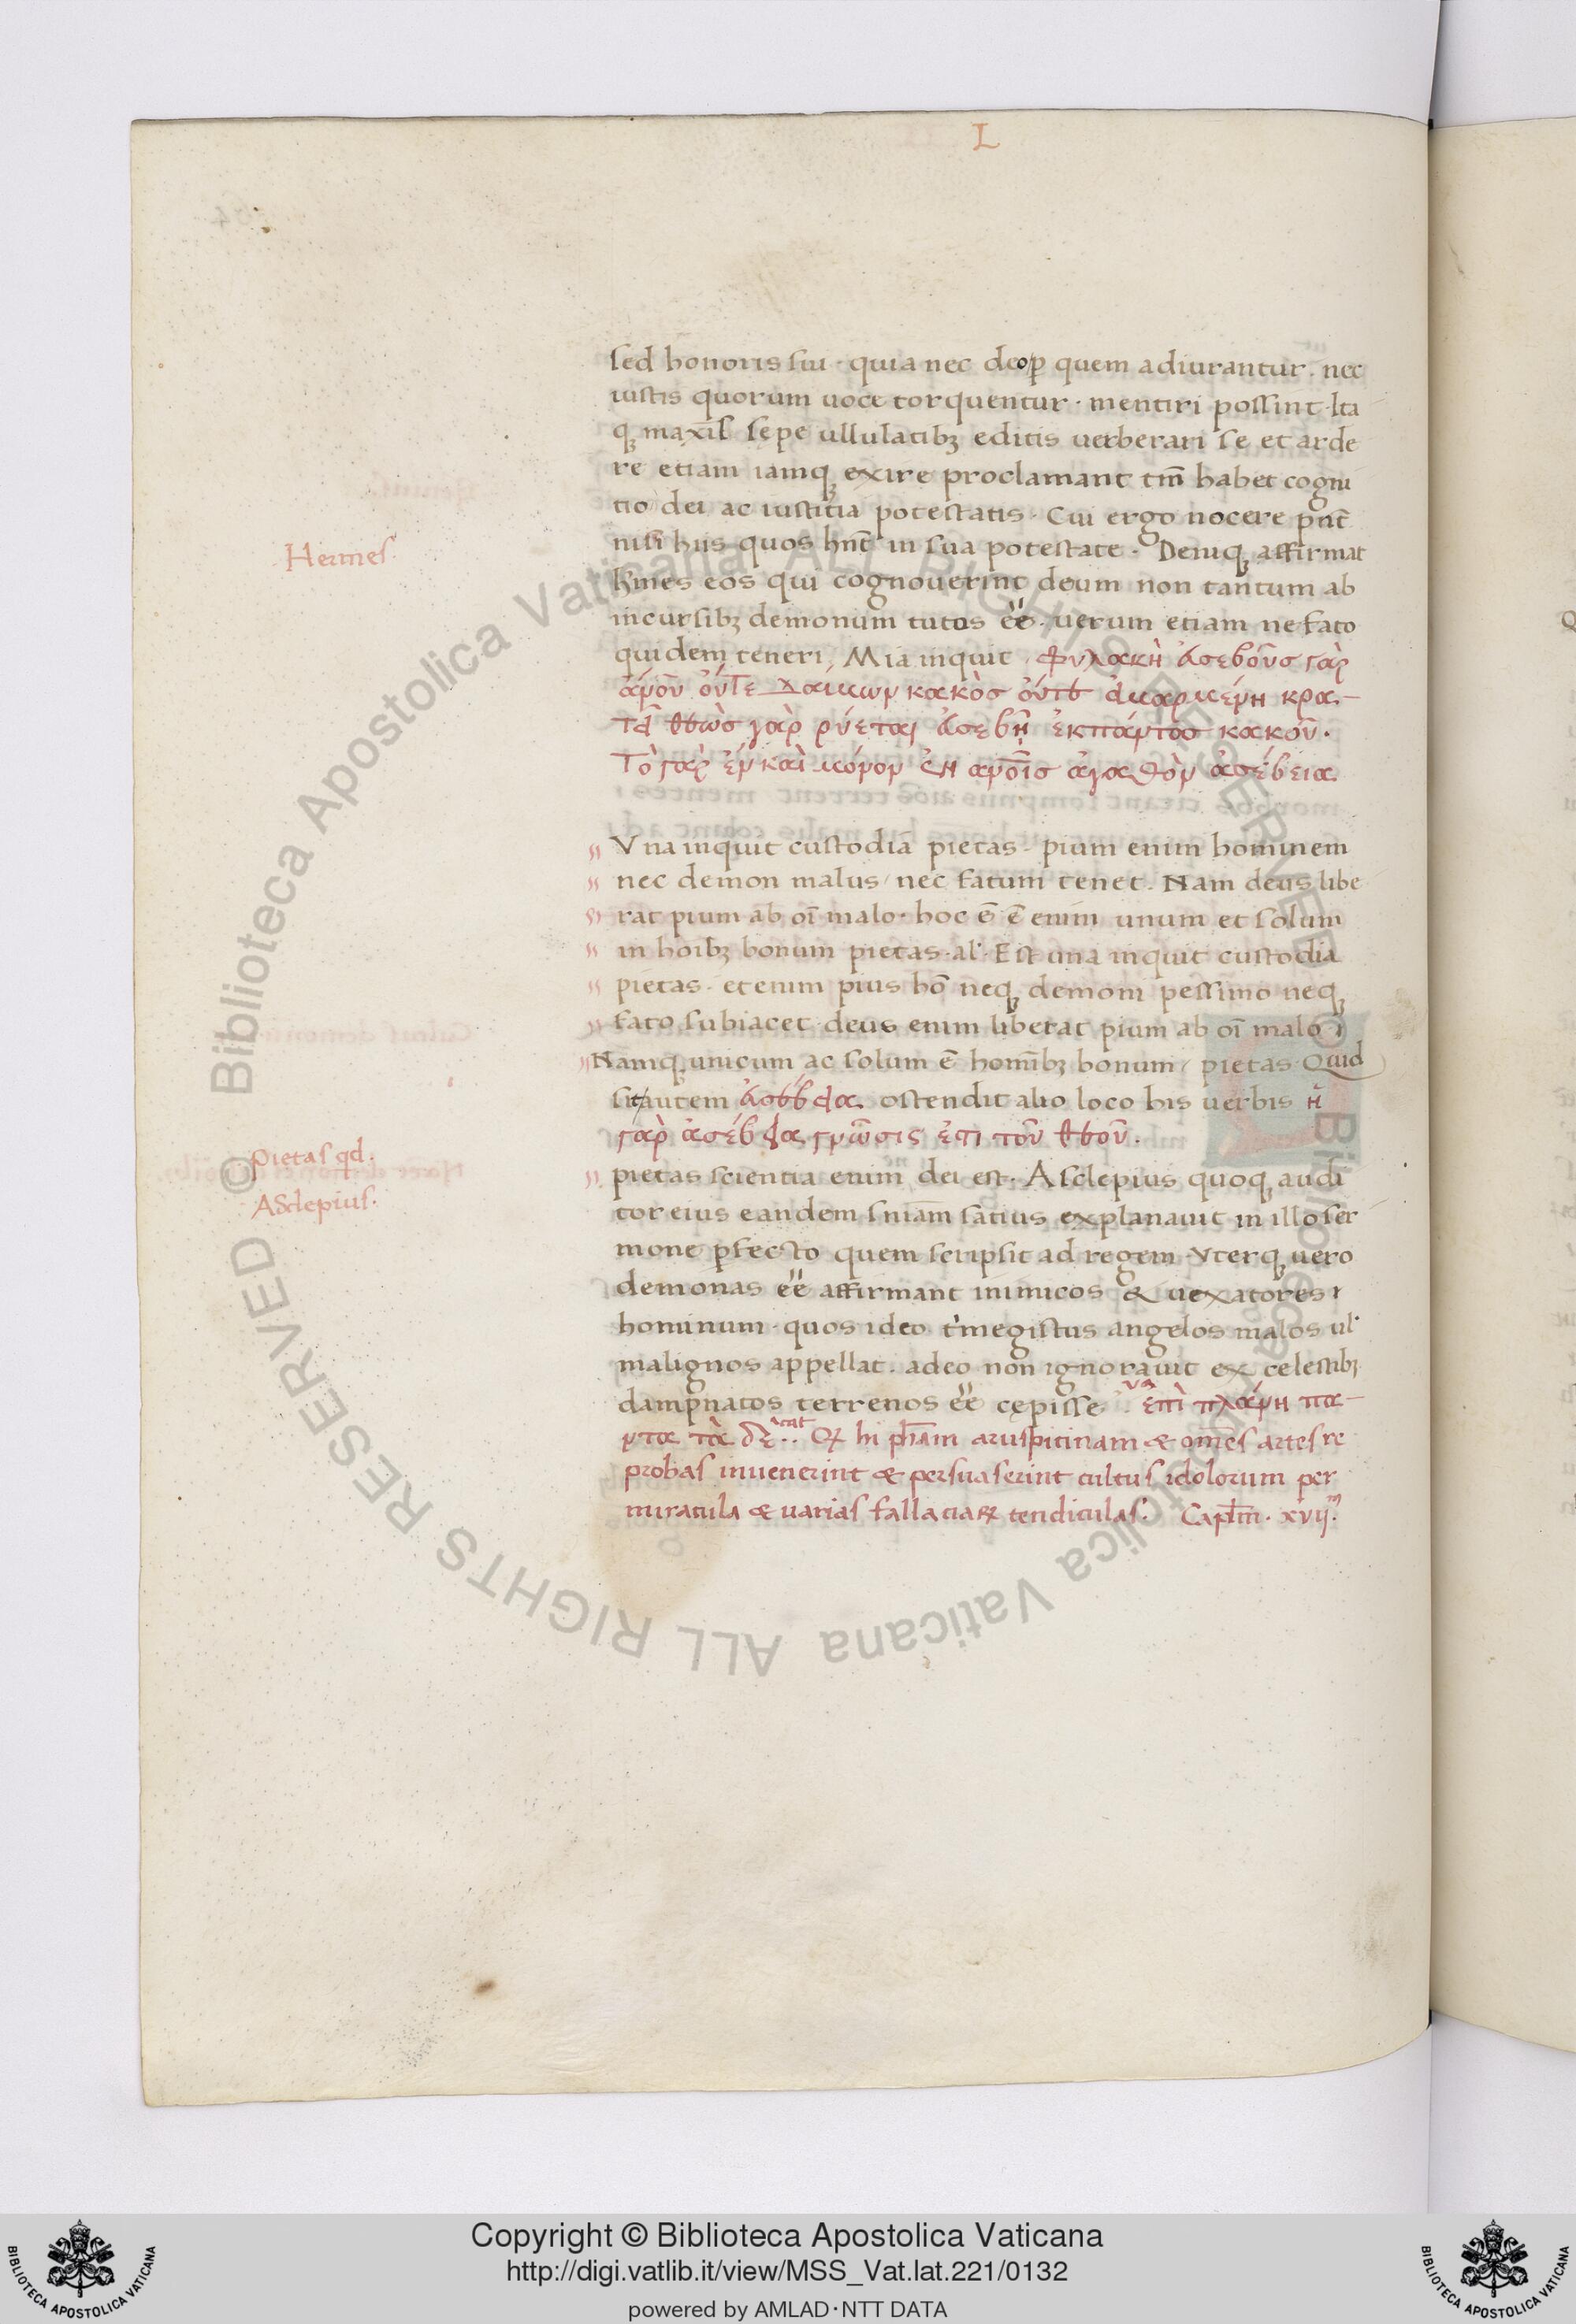 L
sed honoris sui · quia nec deo p̲ quem adiurantur . nec
iustis quorum uoce torquentur · mentiri possint · Ita
qꝫ maxīs sepe ullulatibꝫ editis uerberari se et arde
re etiam iamqꝫ exire proclamant tm̄ habet cogni
tio dei ac iustitia potestatis · Cui ergo nocere pn̄t
nisi hiis quos hn̄t in sua potestate · Deniqꝫ affirmat
Hermes
h̄mes eos qui cognouerint deum non tantum ab
incursibꝫ demonum tutos eē · uerum etiam ne fato
quidem teneri , Mia inquit · φυλακὴ ἀσεβοῦσ γὰρ
ἀνοῦ οὔτε δαίμων κακὸσ οὔτε εἱμαρμένη κρα-
τεῖ θεὼσ γὰρ ρύεται ἀσεβῆ ἐκπάντοσ κακοῦ .
Τὸ γὰρ ἐν καὶ μόνον ἐη ανοῖσ ἀγαθὸν ἀσέβεια
Vna inquit custodia pietas · pium enim hominem
nec demon malus / nec fatum tenet . Nam deus libe
rat pium ab oī malo · hoc ē ē enim unum et solum
in hoībꝫ bonum pietas · al' · Est una inquit custodia
pietas · etenim pius hō neqꝫ demoni pessimo neqꝫ
fato subiacet · deus enim liberat pium ab oī malo
Namqꝫ unicum ac solum ē homībꝫ bonum / pietas · Quid
sit autem ἀσέβεια ostendit alio loco his uerbis ἡ
γαρ ἀσέβεια γνῶσις ἐστι τοῦ θεοῦ .
Pietas qd .
pietas scientia enim dei est · Asclepius quoqꝫ audi
Asclepius .
tor eius eandem sniam satius explanauit in illo ser
mone p̲fecto quem scripsit ad regem · Vterqꝫ uero
demonas eē affirmant inimicos & uexatores
hominum · quos ideo t'megistus angelos malos ul'
malignos appellat . adeo non ignorauit ex celestibꝫ
dampnatos terrenos eē cepisse
Qꝫ hi ph̄iam aruspicinam & om̄es artes re
probas inuenerint & persuaserint cultus idolorum per
miracula & uarias fallaciaꝝ tendiculas . Capl̄m . xvij.
Copyright © Biblioteca Apostolica Vaticana
http://digi.vatlib.it/view/MSS_Vat.lat.221/0132
powered by AMLAD·NTT DATA
BIBLIOTECA APOSTOLICA VATICANA
BIBLIOTECA APOSTOLICA VATICANA
© Biblioteca Apostolica Vaticana ALL RIGHTS RESERVED
© Biblioteca Apostolica Vaticana ALL RIGHTS RESERVED